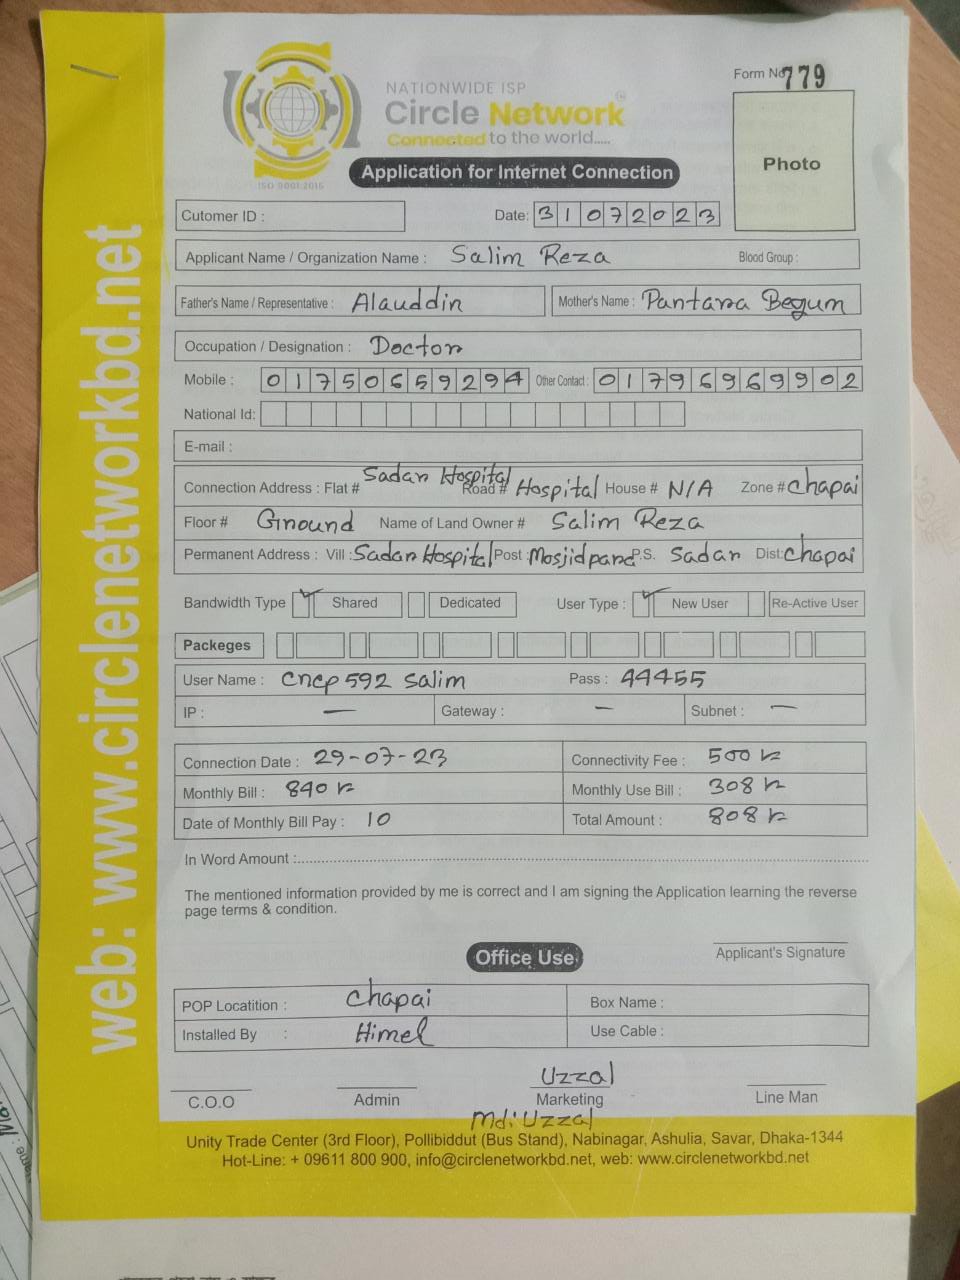 Form No 779
NATIONWIDE ISP
Circle Network
Connected to the world.....
ISO 9001:2015
Application for Internet Connection
Photo
Cutomer ID :
Date: 31072023
Applicant Name / Organization Name : Salim Reza Blood Group :
Father's Name / Representative : Alauddin Mother's Name : Pantara Begum
Occupation / Designation : Doctor
Mobile : 01750659294 Other Contact : 01796969902
National Id:
E-mail :
Connection Address : Flat # Sadar Hospital Road # Hospital House # N/A Zone # Chapai
Floor # Ground Name of Land Owner # Salim Reza
Permanent Address : Vill : Sadar Hospital Post : Mosjidpara P.S. Sadar Dist: Chapai
Bandwidth Type Shared Dedicated User Type : New User Re-Active User
Packeges
User Name : cncp592 salim Pass : 44455
IP : — Gateway : — Subnet : —
Connection Date : 29-07-23 Connectivity Fee : 500
Monthly Bill : 840 Monthly Use Bill : 308
Date of Monthly Bill Pay : 10 Total Amount : 808
In Word Amount :
The mentioned information provided by me is correct and I am signing the Application learning the reverse
page terms & condition.
Applicant's Signature
Office Use
POP Locatition : Chapai Box Name :
Installed By : Himel Use Cable :
Uzzal
C.O.O Admin Marketing Line Man
Md: Uzzal
Unity Trade Center (3rd Floor), Pollibiddut (Bus Stand), Nabinagar, Ashulia, Savar, Dhaka-1344
Hot-Line: + 09611 800 900, info@circlenetworkbd.net, web: www.circlenetworkbd.net
web: www.circlenetworkbd.net